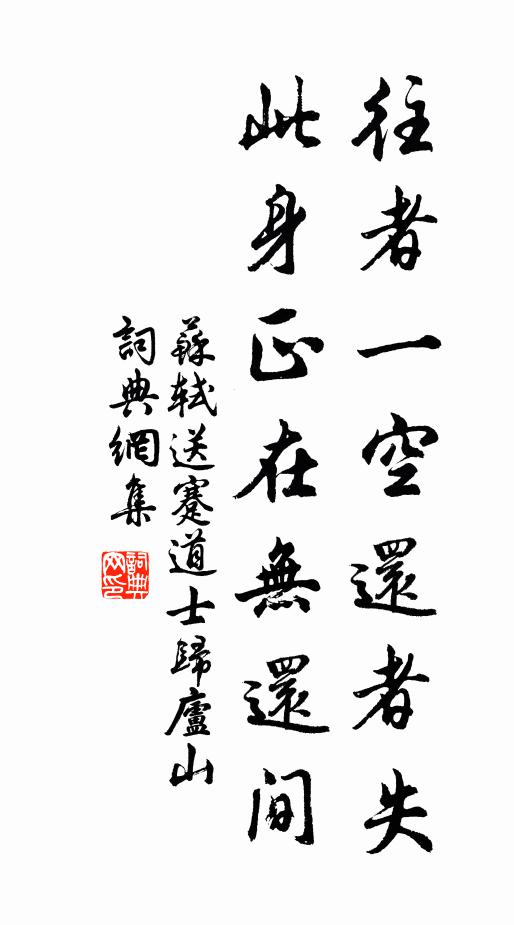 往者一空還者失
此身正在無還間
蘇軾送蹇道士歸廬山
詞典網集
詞典網印